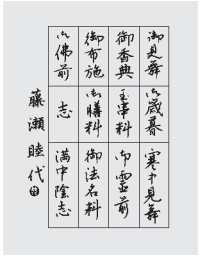 御見舞
御歳暮
寒中見舞
御香典
玉串料
御霊前
御布施
御膳料
御法名料
御佛前
志
満中陰志
藤瀬睦代